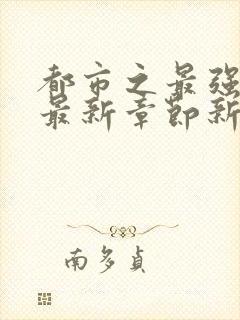 都市之最强
最新章节新
南多贞